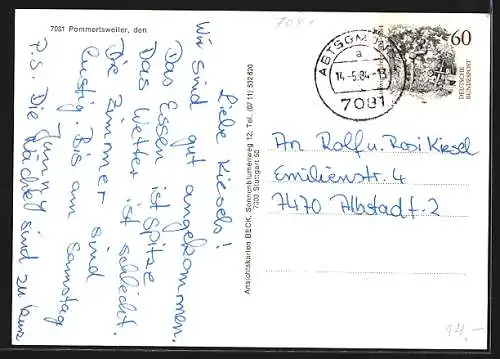 7081 Pommertsweiler, den
Liebe Kiesels!
Wir sind gut angekommen.
Das Essen ist Spitze
Das Wetter ist schlecht.
Die Zimmer sind
lustig. Bis am Samstag
Jünny
P.S. Die Nächte sind zu kurz
Ansichtskarten BECK, Sonnenblumenweg 12, Tel. (07 11) 532630
7000 Stuttgart 50
7081
ABTSGMÜND
a
14.-5.84-13
7081
60
DEUTSCHE
BUNDESPOST
An Rolf u. Rosi Kiesel
Emilienstr. 4
7470 Albstadt-2
14,-